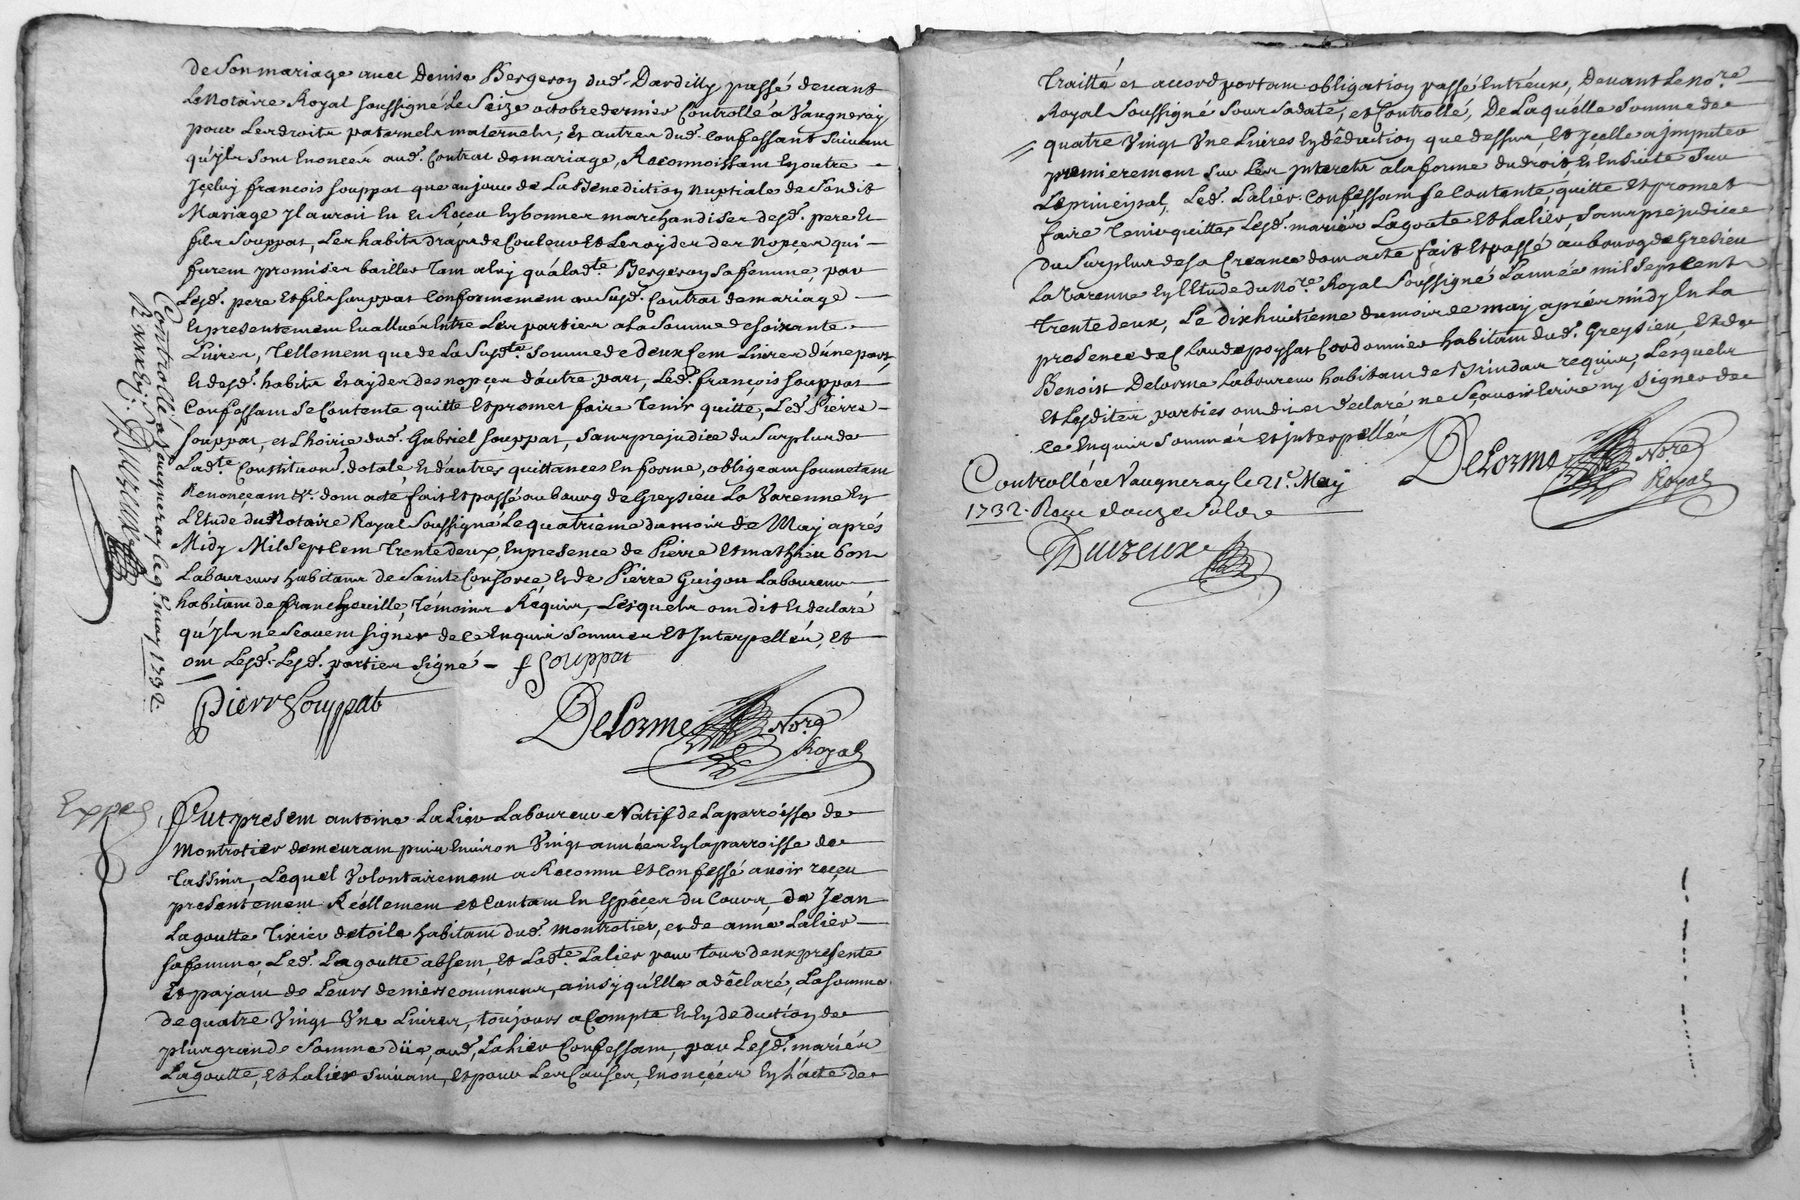 de son mariage avec Denise Bergeron dud. Dardilly passé devant
le Notaire Royal soussigné le Seize octobre dernier Controllé a Vaugneray
pour les droits paternels maternels, et autres dud. confessant suivant
qu'jls sont Enoncés aud. Contrat de mariage, Reconnoissant En outre
jceluy françois souppat que au jour de La Benediction Nuptiale de sondit
Mariage jl auroit Eu et Receu En bonnes marchandises desd. pere et
fils Souppat, Les habits drap de Couleur et Les ayder des Nopçes qui
furent promises bailler tant a luy qu'a lad.te Bergeron sa femme, par
Lesd. pere et fils Souppat Conformement au Susd. Contrat de mariage
Et presentement Evallués Entre Les parties a la Somme de soixante
Livres, Tellement que de La Susd.te Somme de deux Cent Livres d'une part,
et desd. habits et ayder des nopçes d'autre part, Led. françois Souppat
Confessant se Contente quitte et promet faire tenir quitte, Led. Pierre
Souppat, et Lhoirie dud. Gabriel Souppat, sans prejudice du Surplus de
Lad.te Constitution dotale, et d'autres quittances En forme, obligeant soumetant
Renonçeant &c. dont acte, fait et passé au bourg de Greysieu La Varenne En
L'Etude du Notaire Royal Soussigné Le quatrieme du mois de May aprés
Midy Mil Sept Cent Trente deux, En presence de Pierre et mathieu bon
Laboureurs habitans de Sainte Consorce et de Pierre Guigou Laboureur
habitant de francheville, Témoins Réquis, Lesquels ont dit et declaré
qu'jls ne Scavent signer de ce Enquis Sommés et Interpellés, et
ont Lesd. Lesd. parties signé - f Souppat
Pierre Souppat
DeLorme No.re
Royal
Controllé a Vaugneray le 9.e may 1732.
Duvzeux
Expe
Fut present antoine LaLier Laboureur Natif de La parroisse de
Montrotier demeurant puis Environ Vingt années En la parroisse de
Tassins, Lequel Volontairement a Reconnu et Confessé avoir reçeu
presentement Réellement et Contant En Espêces du Cours, de Jean
Lagoutte Tixier de toile habitant dud. Montrotier, et de anne Lalier
sa femme, Led. Lagoutte absent, et Lad.te Lalier pour tous deux presente
Et payant de Leurs deniers communs, ainsy qu'Elle a dêclaré, La somme
de quatre Vingt Une Livres, toujours a Compte et En deduction de
plus grande Somme düe, aud. Lalier Confessant, par Lesd. mariés
Lagoutte, et Lalier Suivant, et pour Les Causes, Enonçées En L'acte de
Traitté et accord portant obligation passé Entréux, Devant Le No.re
Royal Soussigné Sous sa date, et Controllé, De Laquélle Somme de
quatre Vingt Une Livres En dêduction que dessus, et Jçelle a jmputer
premierement Sur Les jnterets a la forme du droit et En suite Sur
Le prinçipal, Led. Lalier Confessant se Contente, quitte et promet
faire tenir quittes Lesd. mariés Lagoute et Lalier, Sans prejudice
du Surplus de sa Creance dont acte fait et passé au bourg de Gresieu
La Varenne En L'Etude du No.re Royal Soussigné L'année mil Sept Cent
Trente deux, Le dix huitieme du mois de may aprés midy En La
presence de Claude poyssat Cordonnier habitant dud. Greysieu, et de
Benoist Delorme Laboureur habitant de Brindas requis, Lesquels
et Lesdites parties ont dit et déclaré ne Sçavoir Ecrire ny signer de
ce Enquis Sommés et jnterpellés
DeLorme No.re
Royal
Controllé a Vaugneray le 21.e May
1732. Reçu douze Sols
Duvzeux